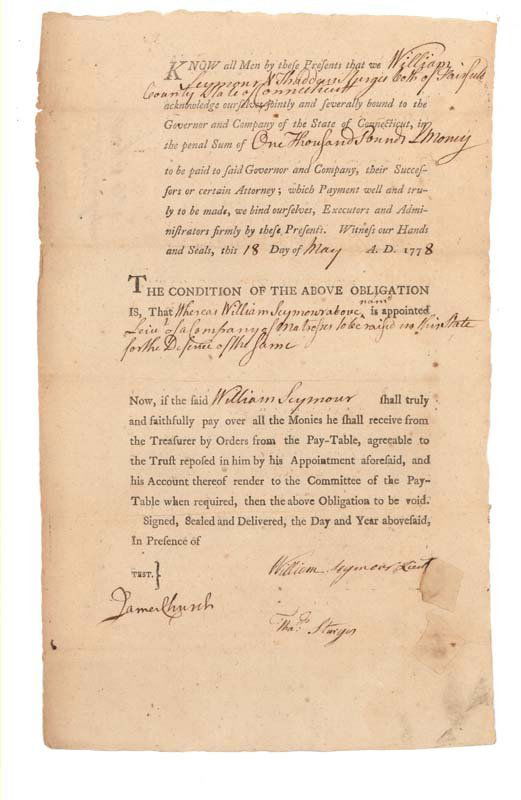 KNOW all Men by these Presents that we William
Seymour & Thaddeus Sturges both of Fairfield
County & State of Connecticutt
acknowledge ourselves jointly and severally bound to the
Governor and Company of the State of Connecticut, in
the penal Sum of One Thousand Pounds L Money
to be paid to said Governor and Company, their Succes-
sors or certain Attorney; which Payment well and tru-
ly to be made, we bind ourselves, Executors and Admi-
nistrators firmly by these Presents. Witness our Hands
and Seals, this 18 Day of May A. D. 1778
THE CONDITION OF THE ABOVE OBLIGATION
named
IS, That Whereas William Seymour above is appointed
Leiut of a Company of Matrosses to be raised in this State
for the Defence of the Same
Now, if the said William Seymour shall truly
and faithfully pay over all the Monies he shall receive from
the Treasurer by Orders from the Pay-Table, agreeable to
the Trust reposed in him by his Appointment aforesaid, and
his Account thereof render to the Committee of the Pay-
Table when required, then the above Obligation to be void.
Signed, Sealed and Delivered, the Day and Year abovesaid,
In Presence of
TEST.}
William Seymour Lieut
James Church
Thads Sturges